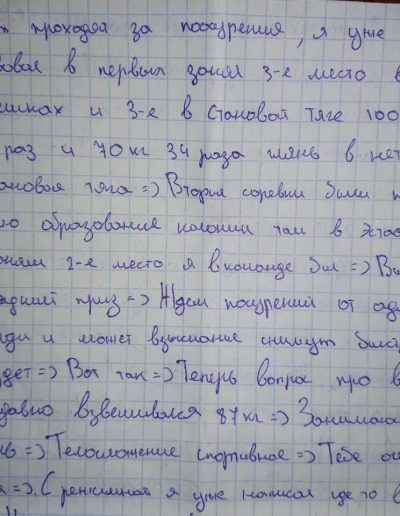 проходят за поощрения, я уже
в первых занял 3-е место в
и 3-е в становой тяге 100
раз и 70кг 34 раза глянь в нет
тяга => Вторая соревы были
образования колонии там в эстаф
2-е место я в команде был => В
приз => Ждем поощрений от ад
и может взыскание снимут быст
=> Вот так => Теперь вопрос про в
взвешивался 87кг => Занимаюс
=> Телосложение спортивное => Тебе
=> . С я уже написал где то в